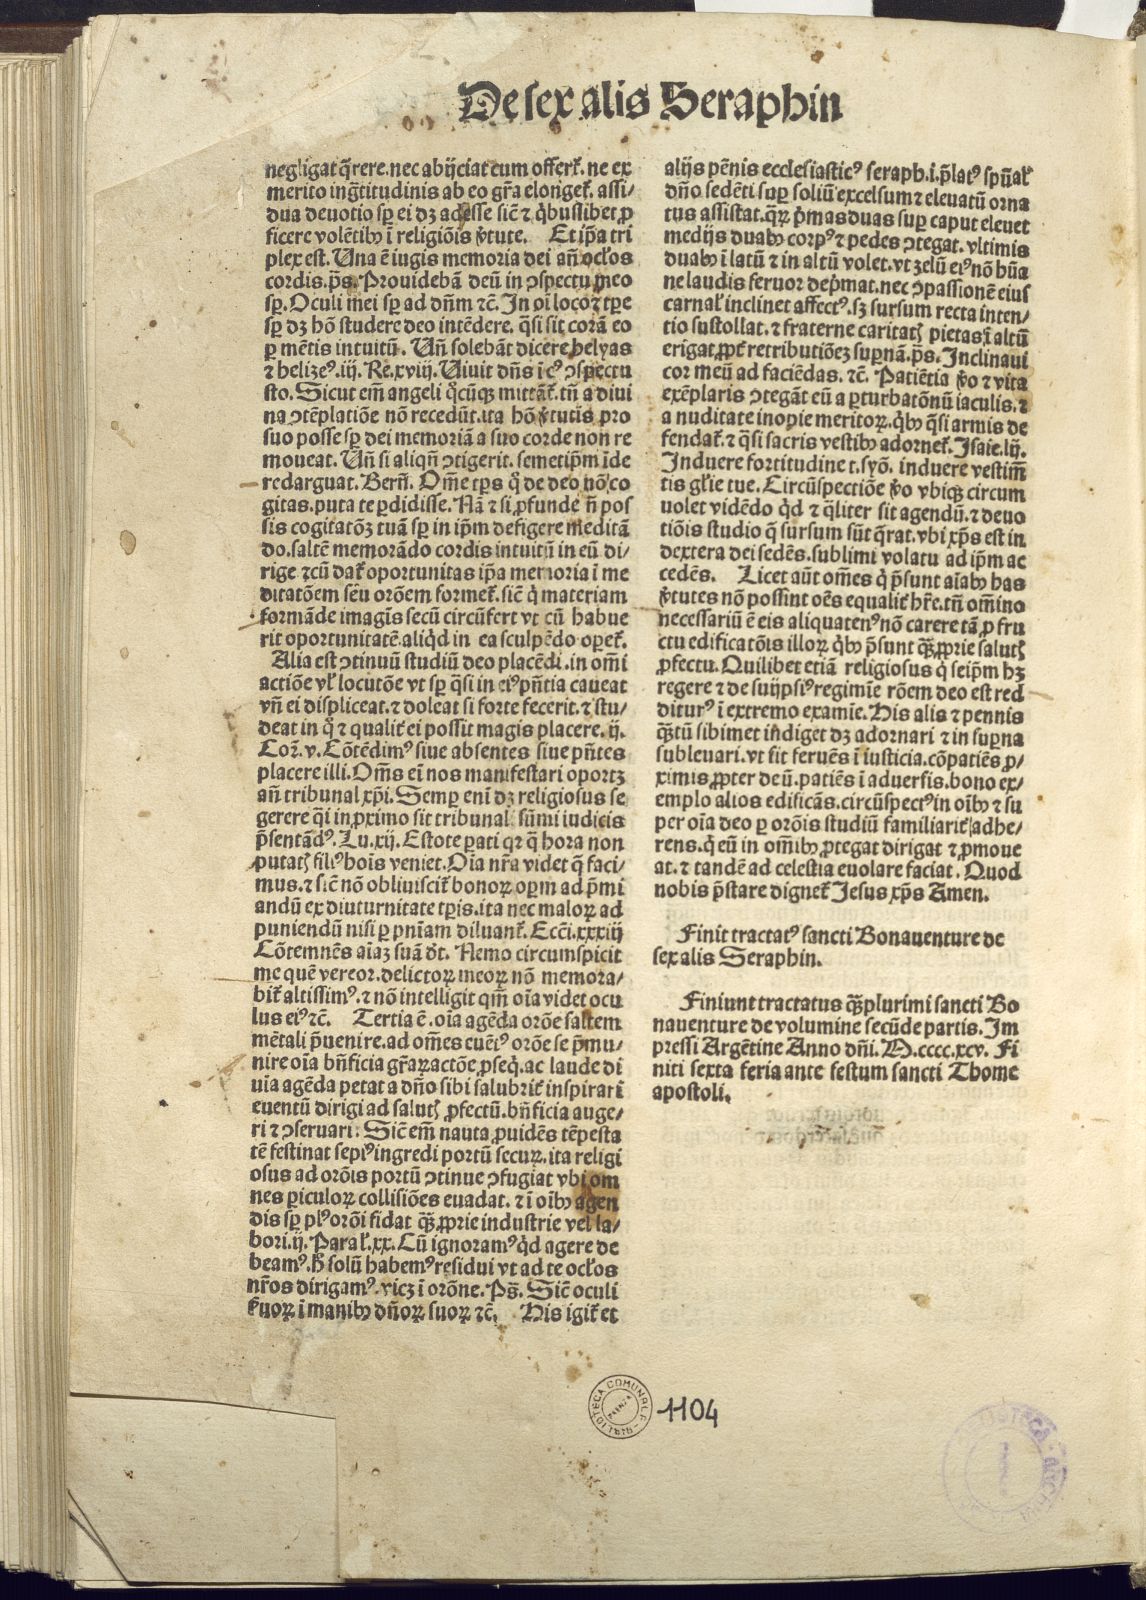 De sex alis Seraphin
negligat q̄rere. nec abijciat cum offert̄. ne ex
merito ingr̄titudinis ab eo gr̄a elonget̄. assi/
dua deuotio sp̱ ei dꝫ adesse sic̄ ⁊ q̇buslibet ꝓ
ficere volētibꝰ ī religiōis v̄tute. Et ip̄a tri
plex est. Una ē iugis memoria dei an̄ ocl̄os
cordis. p̄s. Prouidebā deū in ꝯspectu meo
sp̱. Oculi mei sp̱ ad dn̄m ⁊c̄. In oī loco ⁊ tp̄e
sp̱ dꝫ hō studere deo intēdere. q̄si sit corā eo
ꝑ mētis intuitū. Un̄ solebāt dicere helyas
⁊ helizeꝰ. iij. Re. xviij. Uiuit dn̄s ī cꝰ ꝯspectu
sto. Sicut em̄ angeli q̊cūqꝫ mittāt̄. tn̄ a diui
na ꝯtēplatiōe nō recedūt. ita hō v̄tutis pro
suo posse sp̱ dei memoriā a suo corde non re
moueat. Un̄ si aliqn̄ ꝯtigerit. semetip̄m īde
redarguat. Bern̄. Om̄e tp̄s q̊ de deo nō co
gitas. puta te perdidisse. Nā ⁊ si ꝓfunde n̄ pos
sis cogitatōꝫ tuā sp̱ in ip̄m defigere meditā
do. saltē memorādo cordis intuitū in eū di/
rige ⁊ cū dat̄ oportunitas ip̄a memoria ī me
ditatōem seu orōem formet̄. sic̄ q̇ materiam
formāde imagīs secū circūfert vt cū habue
rit oportunitatē aliq̇d in ea sculpēdo oꝑet̄.
Alia est ꝯtinuū studiū deo placēdi. in om̄i
actiōe vl̄ locutōe vt sp̱ q̄si in eiꝰ pn̄tia caueat
vn̄ ei displiceat. ⁊ doleat si forte fecerit. ⁊ stu/
deat in q̊ ⁊ qualit̄ ei possit magis placere. ij.
Coꝝ. v. Cōtēdimꝰ siue absentes siue pn̄tes
placere illi. Om̄s eī nos manifestari oportꝫ
an̄ tribunal xp̄i. Semꝑ enī dꝫ religiosus se
gerere q̄i in ꝓximo sit tribunal sūmi iudicis
p̄sentādꝰ. Lu. xij. Estote ꝑati qꝛ q̄ hora non
putatꝭ filiꝰ hoīs veniet. Oīa nr̄a videt q̄ faci/
mus. ⁊ sic̄ nō obliuiscit̄ bonoꝝ oꝑm ad p̄mi
andū ex diuturnitate tp̄is. ita nec maloꝝ ad
puniendū nisi ꝑ pn̄iam diluant̄. Ecc̄i. xxxiij
Cōtemnēs aīaꝫ suā dt̄. Nemo circumspicit
me quē vereor. delictoꝝ meoꝝ nō memora/
bit̄ altissimꝰ. ⁊ nō intelligit qm̄ oīa videt ocu
lus eiꝰ ⁊c̄. Tertia ē. oīa agēda orōe saltem
mētali p̄uenire. ad om̄es euētꝰ orōe se p̄mu/
nire oīa bn̄ficia gr̄aꝝ actōe ꝓseq̇. ac laude di
uīa agēda petat a dn̄o sibi salubrit̄ inspirari
euentū dirigi ad salutꝭ ꝓfectū. bn̄ficia auge/
ri ⁊ ꝯseruari. Sic̄ em̄ nauta ꝓuidēs tēpesta
tē festinat sepiꝰ ingredi portū secuꝝ. ita religi
osus ad orōis portū ꝯtinue ꝯfugiat vbi om
nes periculoꝝ collisiōes euadat. ⁊ ī oībꝰ agen
dis sp̱ plꝰ orōi fidat qꝫ̄ ꝓprie industrie vel la/
bori. ij. Paral̄. xx. Cū ignoramꝰ q̇d agere de
beamꝰ. h̊ solū habemꝰ residui vt ad te ocl̄os
nr̄os dirigamꝰ. vicꝫ ī orōne. Ps̄. Sic̄ oculi
s̄uoꝝ ī manibꝰ dn̄oꝝ suoꝝ ⁊c̄. His igit̄ et
alijs pēnis ecclesiasticꝰ seraph. i. p̄latꝰ spūal̄
dn̄o sedēti suꝑ soliū excelsum ⁊ eleuatū orna
tus assistat. q̄ꝝ p̄mas duas suꝑ caput eleuet
medijs duabꝰ corpꝰ ⁊ pedes ꝯtegat. vltimis
duabꝰ ī latū ⁊ in altū volet. vt zelū eiꝰ nō hūa
ne laudis feruor dep̄mat. nec ꝯpassionē eius
carnal̄ inclinet affectꝰ. sꝫ sursum recta inten/
tio sustollat. ⁊ fraterne caritatꝭ pietas ī altū
erigat ꝓpt̄ retributiōeꝫ suꝑnā. p̄s. Inclinaui
cor meū ad faciēdas. ⁊c̄. Patiētia v̊o ⁊ vita
exēplaris ꝯtegāt eū a ꝑturbatōnū iaculis. ⁊
a nuditate inopie meritoꝝ. q̇bꝰ q̄si armis de
fendat̄. ⁊ q̄si sacris vestibꝰ adornet̄. Isaie. lij.
Induere fortitudine t. syō. induere vestim̄
tis gl̄ie tue. Circūspectiōe v̊o vbiqꝫ circum
uolet vidēdo q̇d ⁊ q̄liter sit agendū. ⁊ deuo
tiōis studio q̄ sursum sūt q̄rat. vbi xp̄s est in
dextera dei sedēs. sublimi volatu ad ip̄m ac
cedēs. Licet aūt om̄es q̇ p̄sunt aīabꝰ has
v̄tutes nō possint oēs equalit̄ hr̄e. tn̄ om̄ino
necessariū ē eis aliquatenꝰ nō carere tā ꝓ fru
ctu edificatōis illoꝝ q̇bꝰ p̄sunt qꝫ̄ ꝓprie salutꝭ
ꝓfectu. Quilibet etiā religiosus q̇ seip̄m hꝫ
regere ⁊ de suijpsiꝰ regimīe rōem deo est red
diturꝰ ī extremo examīe. His alis ⁊ pennis
qꝫ̄tū sibimet indiget dꝫ adornari ⁊ in suꝑna
subleuari. vt sit feruēs ī iusticia. cōpatiēs ꝓ/
ximis ꝓpter deū. patiēs ī aduersis. bono ex/
emplo alios edificās. circūspectꝰ in oībꝰ ⁊ su
per oīa deo ꝑ orōis studiū familiarit̄ adhe/
rens. q̇ eū in om̄ibꝰ ꝓtegat dirigat ⁊ ꝓmoue
at. ⁊ tandē ad celestia euolare faciat. Quod
nobis p̄stare dignet̄ Jesus xp̄s Amen.
Finit tractatꝰ sancti Bonauenture de
sex alis Seraphin.
Finiunt tractatus qꝫ̄plurimi sancti Bo
nauenture de volumine secūde partis. Im
pressi Argētine Anno dn̄i. M.cccc.xcv. Fi
niti sexta feria ante festum sancti Thome
apostoli.
BIBLIOTECA COMUNALE
1104